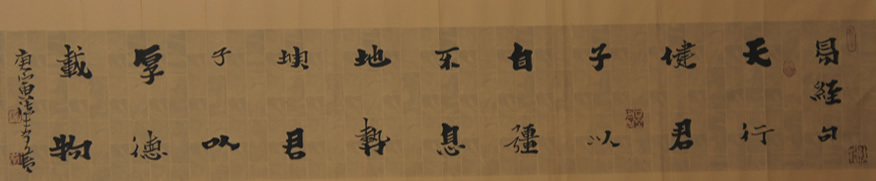 易經句
天行
健君
子以
自彊
不息
地勢
坤君
子以
厚德
載物
庚寅